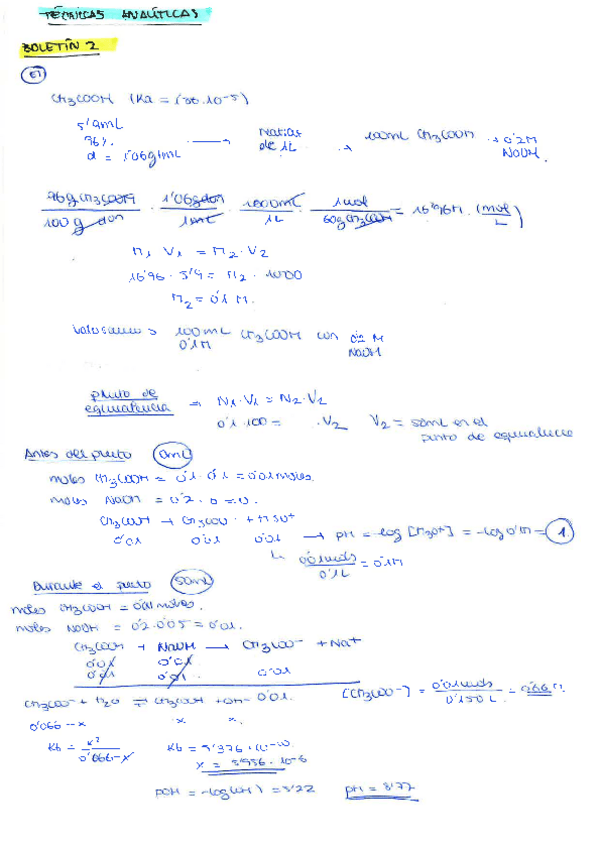 TÉCNICAS ANALÍTICAS
BOLETÍN 2
CH3COOH (Ka = 1'86·10-5)
5'9mL
96%
d = 1'06g/mL
Matraz de 1L
100mL CH3COOH + 0'2M NaOH.
96g CH3COOH / 100 g don · 1'06g don / 1mL · 1000mL / 1L · 1mol / 60g CH3COOH = 16'96M. (mol/L)
M1 V1 = M2·V2
16'96 · 5'9 = M2 · 1000
M2 = 0'1 M.
100mL CH3COOH con 0'2 M NaOH
0'1M
punto de equivalencia = N1·V1 = N2·V2
0'1·100 = ·V2 V2 = 50mL en el punto de equivalencia
Antes del punto 0mL
moles CH3COOH = 0'1·0'1 = 0'01 moles.
moles NaOH = 0'2·0 = 0.
CH3COOH → CH3COO- + H3O+ → pH = -log [H3O+] = -log 0'1M = 1
0'01 0'01 0'01
0'01 moles / 0'1L = 0'1M
Durante el punto 50mL
moles CH3COOH = 0'01 moles.
moles NaOH = 0'2·0'05 = 0'01.
CH3COOH + NaOH → CH3COO- + Na+
0'01 0'01
0'01 0'01 0'01
CH3COO- + H2O ⇌ CH3COOH + OH- 0'01. [CH3COO-] = 0'01 moles / 0'150L = 0'066 M
0'066-x x x.
Kb = x² / 0'066-x Kb = 5'376·10-10
x = 5'956·10-6
pOH = -log(OH) = 5'22 pH = 8'77